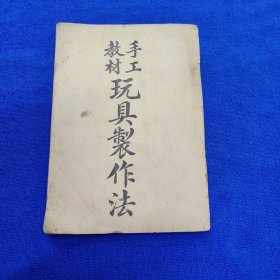 手工
教材
玩具製作法